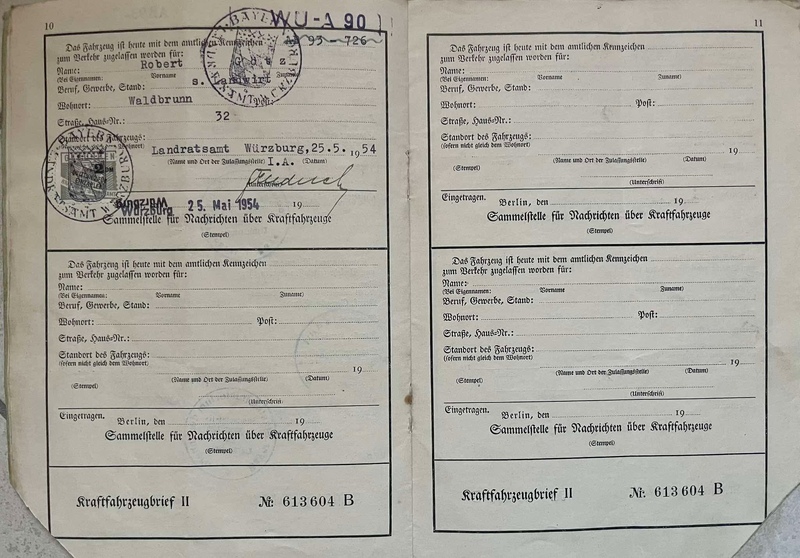 10
WU-A 90
Das Fahrzeug ist heute mit dem amtlichen Kennzeichen
93-726
zum Verkehr zugelassen worden für:
Name: Robert
(Bei Eigennamen: Vorname
Beruf, Gewerbe, Stand: s. Landwirt
Wohnort: Waldbrunn
Straße, Haus-Nr.: 32
Landratsamt Würzburg, 25.5. 1954
(Name und Ort der Zulassungsstelle) I.A. (Datum)
Würzburg
Würzburg 25. Mai 1954 19
Sammelstelle für Nachrichten über Kraftfahrzeuge
(Stempel)
Das Fahrzeug ist heute mit dem amtlichen Kennzeichen
zum Verkehr zugelassen worden für:
Name:
(Bei Eigennamen: Vorname Zuname)
Beruf, Gewerbe, Stand:
Wohnort: Post:
Straße, Haus-Nr.:
Standort des Fahrzeugs:
(sofern nicht gleich dem Wohnort)
19
(Name und Ort der Zulassungsstelle) (Datum)
(Stempel)
(Unterschrift)
Eingetragen. Berlin, den 19
Sammelstelle für Nachrichten über Kraftfahrzeuge
(Stempel)
Kraftfahrzeugbrief II Nr. 613604 B
11
Das Fahrzeug ist heute mit dem amtlichen Kennzeichen
zum Verkehr zugelassen worden für:
Name:
(Bei Eigennamen: Vorname Zuname)
Beruf, Gewerbe, Stand:
Wohnort: Post:
Straße, Haus-Nr.:
Standort des Fahrzeugs:
(sofern nicht gleich dem Wohnort)
19
(Name und Ort der Zulassungsstelle) (Datum)
(Stempel)
(Unterschrift)
Eingetragen. Berlin, den 19
Sammelstelle für Nachrichten über Kraftfahrzeuge
(Stempel)
Das Fahrzeug ist heute mit dem amtlichen Kennzeichen
zum Verkehr zugelassen worden für:
Name:
(Bei Eigennamen: Vorname Zuname)
Beruf, Gewerbe, Stand:
Wohnort: Post:
Straße, Haus-Nr.:
Standort des Fahrzeugs:
(sofern nicht gleich dem Wohnort)
19
(Name und Ort der Zulassungsstelle) (Datum)
(Stempel)
(Unterschrift)
Eingetragen. Berlin, den 19
Sammelstelle für Nachrichten über Kraftfahrzeuge
(Stempel)
Kraftfahrzeugbrief II Nr. 613604 B